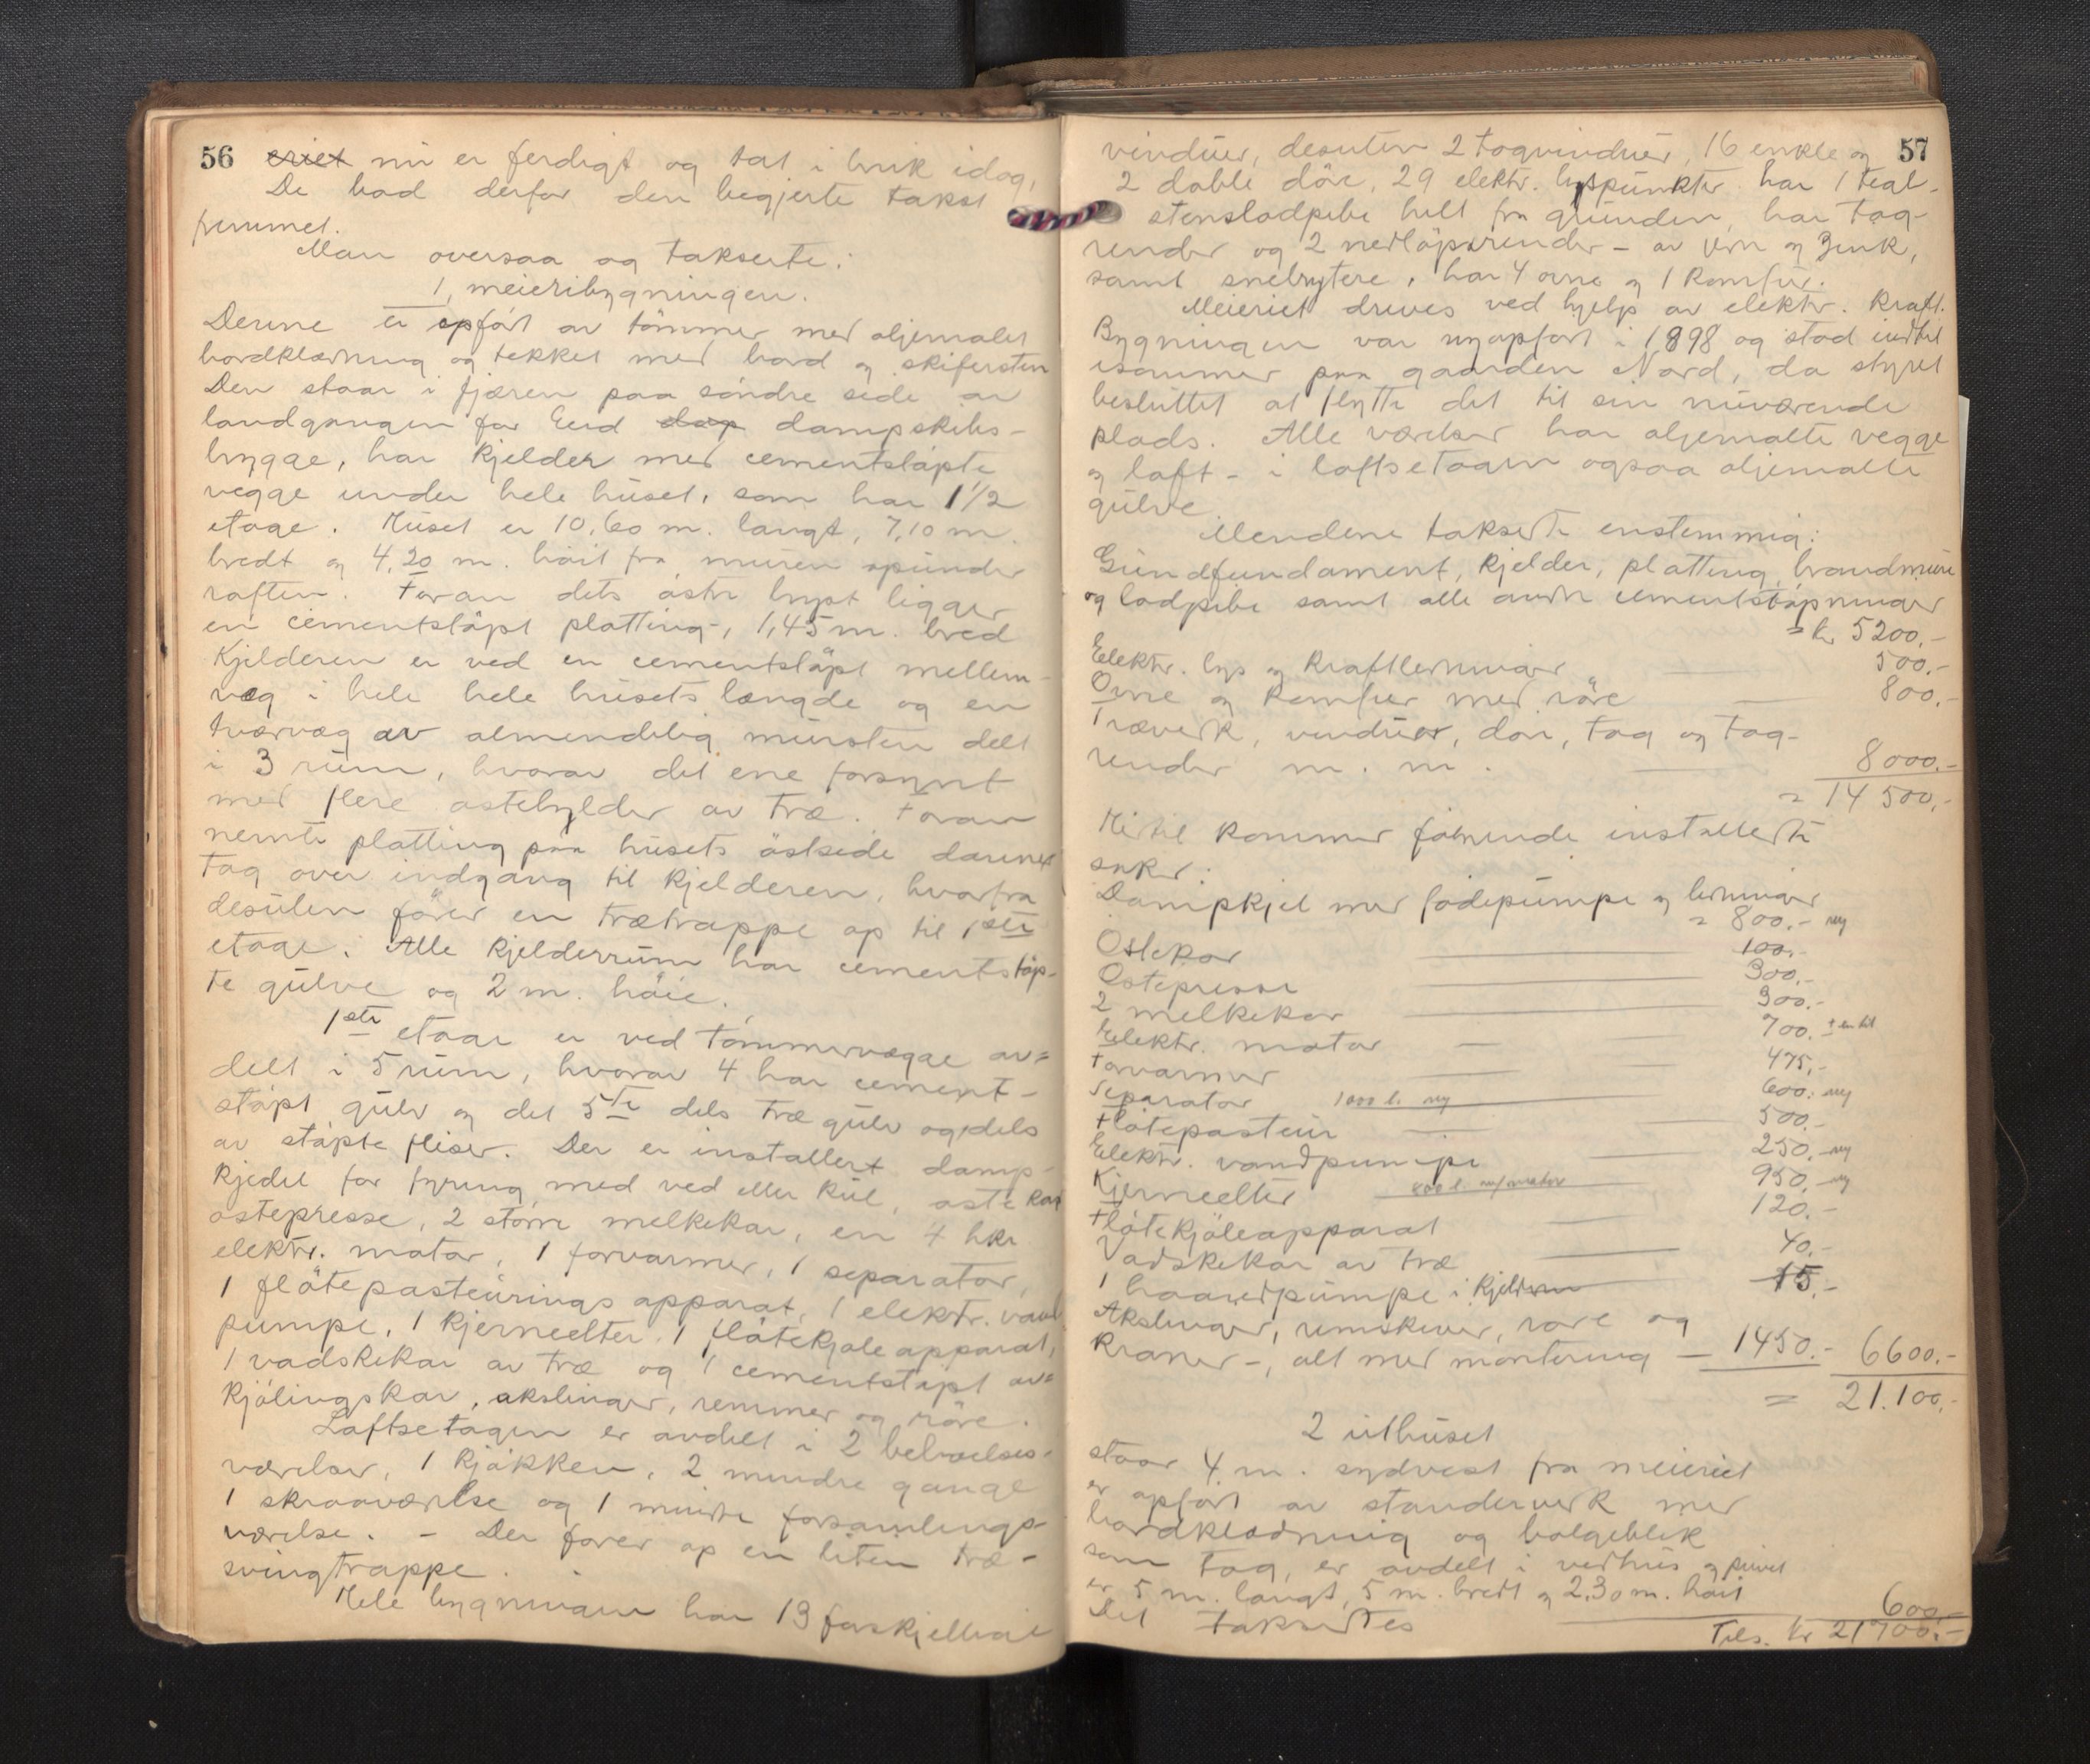 56 eriet nu er ferdigt og tat i bruk idag,
De bad derfor den begjerte takst
fremmet.
Man oversaa og takserte:
1, meieribygningen.
Denne er opført av tømmer med oljemalet
bordklædning og tekket med bord og skifersten
Den staar i fjæren paa søndre side av
landgangen for Eid damp dampskibs-
brygge, har kjelder med cementstøpte
vegge under hele huset, som har 1 1/2
etage. Huset er 10,60 m. langt, 7,10 m.
bredt og 4,20 m. høit fra muren opunder
raften. Foran dets østre lngst ligger
en cementstøpt platting, 1,45 m. bred
Kjelderen er ved en cementstøpt mellem-
væg i hele hele husets længde og en
tværvæg av almendelig mursten delt
i 3 rum, hvorav det ene forsynt
med flere ostehylder av træ. Foran
nemte platting paa husets østside danner
tag over indgang til kjelderen, hvorfra
desuten fører en trætrappe op til 1ste
etage. Alle kjelderrum har cementstøp-
te gulve og 2 m. høie.
1ste etage er ved tømmervægge av=
delt i 5 rum, hvorav 4 har cement-
støpt gulv og det 5te dels træ gulv og dels
av støpte fliser. Der er installert damp-
kjedel for fyring med ved eller kul, ostekar
ostepresse, 2 større melkekar, en 4 hkr.
elektr. motor, 1 forvarmer, 1 separator,
1 fløtepasteurings apparat, 1 elektr. vand
pumpe, 1 kjerneelter, 1 fløtekjøleapparat,
1 vadskekar av træ og 1 cementstøpt av=
kjølingskar, akslinger, remmer og røre.
Loftsetagen er avdelt i 2 beboelses-
værelser, 1 kjøkken, 2 mindre gange
1 skraaværelse og 1 mindre forsamlings-
værelse. - Der fører op en liten træ-
svingtrappe.
Hele bygningen har 13 forskjellige
57
vinduer, desuten 2 tagvinduer, 16 enkle og
2 doble døre, 29 elektr. lyspunkter. har 1 tegl-
stenslodpibe helt fra grunden, har tag-
render og 2 nedløpsrender - av jern og zink,
samt snebrytere, har 4 ovne og 1 komfur.
Meieriet drives ved hjelp av elektr. kraft.
Bygningen var nyopført i 1898 og stod indtil
isommer paa gaarden Nord, da styret
besluttet at flytte det til sin nuværende
plads. Alle værelser har oljemalte vegge
og loft - i loftsetagen ogsaa oljemalte
gulve
Mendene takserte enstemmig:
Grundfundament, kjelder, platting, brandmure
og lodpibe samt alle andre cementstøpninger
= kr 5200.-
Elektr. lys og kraftledninger 500.-
Ovne og komfur med røre 800.-
Træverk, vinduer, døre, tag og tag-
render m. m. 8000.-
= 14 500.-
Hertil kommer følgende installerte
saker:
Dampkjel med fødepumpe og ledninger
= 800.- ny
Ostekar 100.-
Ostepresse 300.-
2 melkekar 300.-
Elektr. motor 700.- + en til
Forvarmer 475,-
Separator 1000 l. ny 600.- ny
Fløtepasteur 500.-
Elektr. vandpumpe 250.- ny
Kjerneelter 800 l. m/motor 950.- ny
Fløtekjøleapparat 120.-
Vadskekar av træ 40.-
1 haandpumpe i kjelderen 15.-
Akslinger, remskiver, røre og
kraner -, alt med montering - 1450.- 6600.-
= 21.100.-
2 uthuset
staar 4 m. sydvest fra meieriet
er opført av standerverk med
bordklædning og bølgeblik
som tag, er avdelt i vedhus og privet
er 5 m. langt, 5 m. bredt og 2,30 m. høit
Det taksertes 600.-
Tils. kr 21700.-